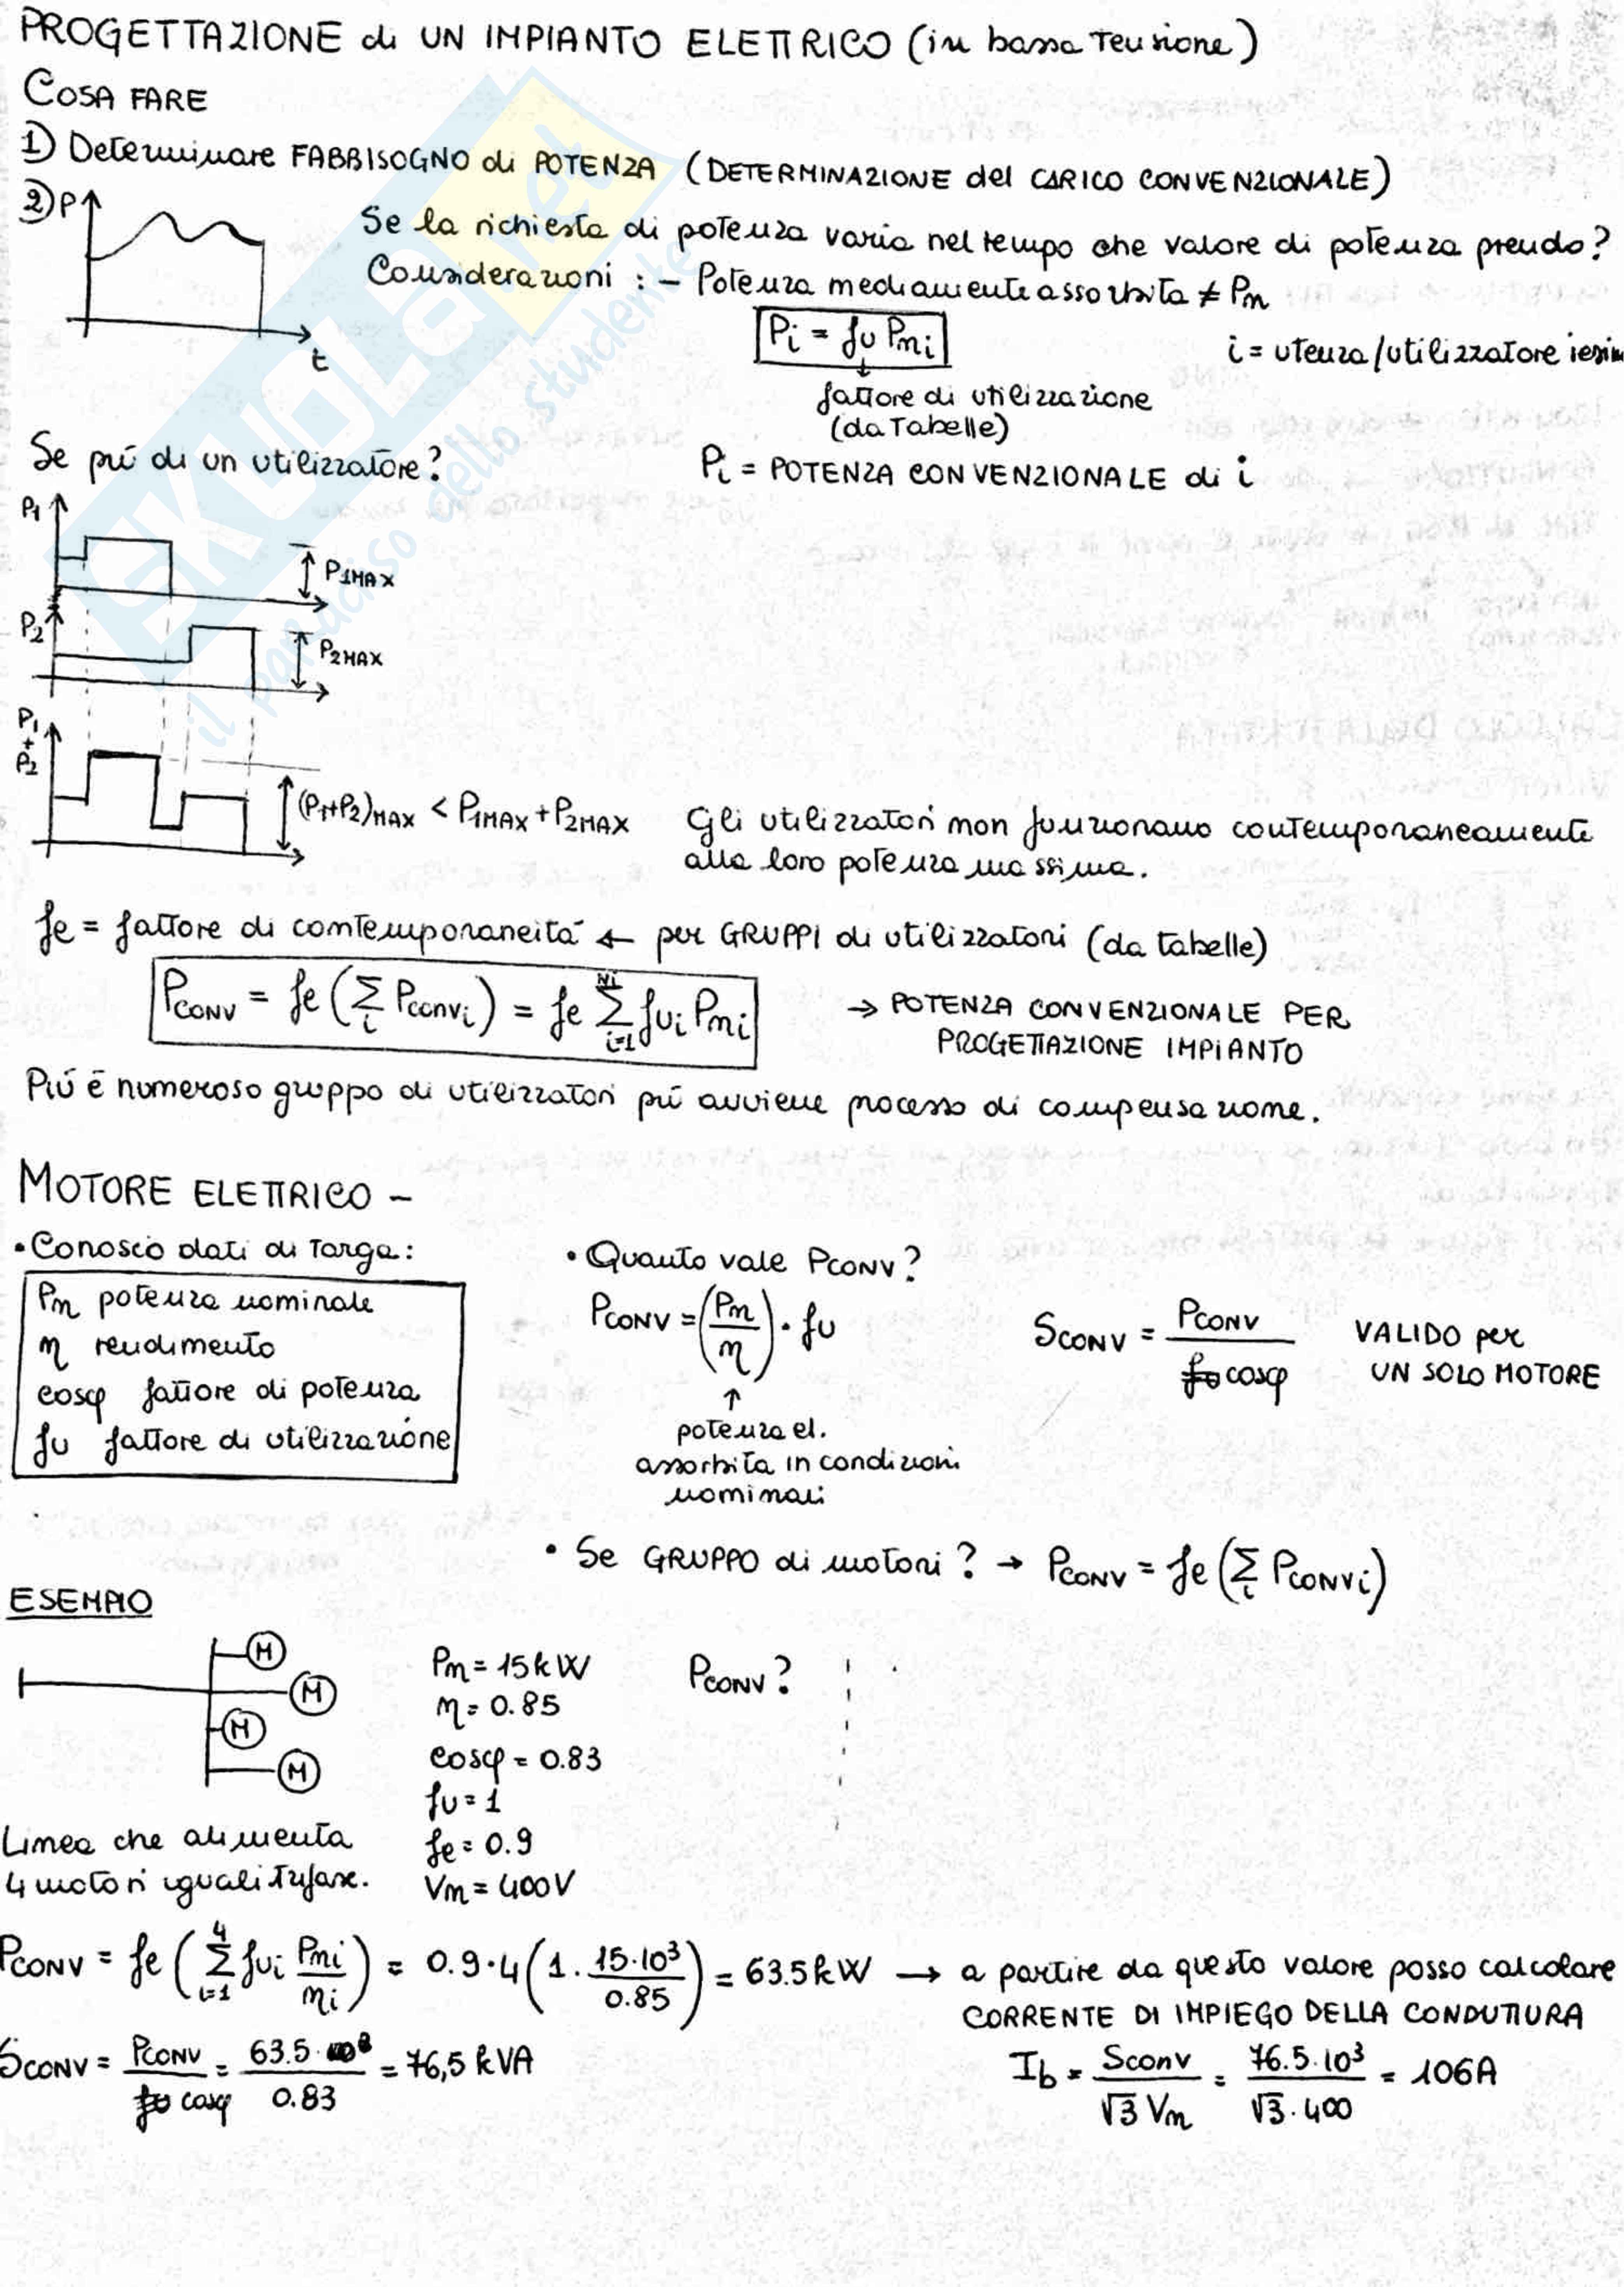 PROGETTAZIONE di UN IMPIANTO ELETTRICO (in bassa tensione)
COSA FARE
1) Determinare FABBISOGNO di POTENZA (DETERMINAZIONE del CARICO CONVENZIONALE)
2) P
t
Se la richiesta di potenza varia nel tempo che valore di potenza prendo?
Considerazioni : - Potenza mediamente assorbita ≠ Pn
Pi = fu Pni
i = utenza/utilizzatore iesim
fattore di utilizzazione
(da Tabelle)
Se più di un utilizzatore?
Pi = POTENZA CONVENZIONALE di i
P1
P1MAX
P2
P2MAX
P1
+
P2
(P1+P2)MAX < P1MAX + P2MAX
Gli utilizzatori non funzionano contemporaneamente
alla loro potenza massima.
fc = fattore di contemporaneità ← per GRUPPI di utilizzatori (da tabelle)
PCONV = fc (∑i Pconvi) = fc ∑i=1Ni fui Pni
→ POTENZA CONVENZIONALE PER
PROGETTAZIONE IMPIANTO
Più è numeroso gruppo di utilizzatori più avviene processo di compensazione.
MOTORE ELETTRICO -
• Conosco dati di Targa:
Pn potenza nominale
η rendimento
cosφ fattore di potenza
fu fattore di utilizzazione
• Quanto vale PCONV?
PCONV = (Pn/η) · fu
↑
potenza el.
assorbita in condizioni
nominali
SCONV = PCONV / fu cosφ
VALIDO per
UN SOLO MOTORE
• Se GRUPPO di motori? → PCONV = fc (∑i PCONVi)
ESEMPIO
M
M
M
M
Linea che alimenta
4 motori uguali trifase.
Pn = 15 kW
η = 0.85
cosφ = 0.83
fu = 1
fc = 0.9
Vn = 400V
PCONV?
PCONV = fc (∑i=14 fui Pni/ηi) = 0.9·4 (1 · 15·10³/0.85) = 63.5 kW → a partire da questo valore posso calcolare
CORRENTE DI IMPIEGO DELLA CONDUTTURA
SCONV = PCONV / fu cosφ = 63.5·10³ / 0.83 = 76,5 kVA
Ib = Sconv / √3 Vn = 76.5·10³ / √3·400 = 106A
SKUOLA.net
il paradiso dello studente